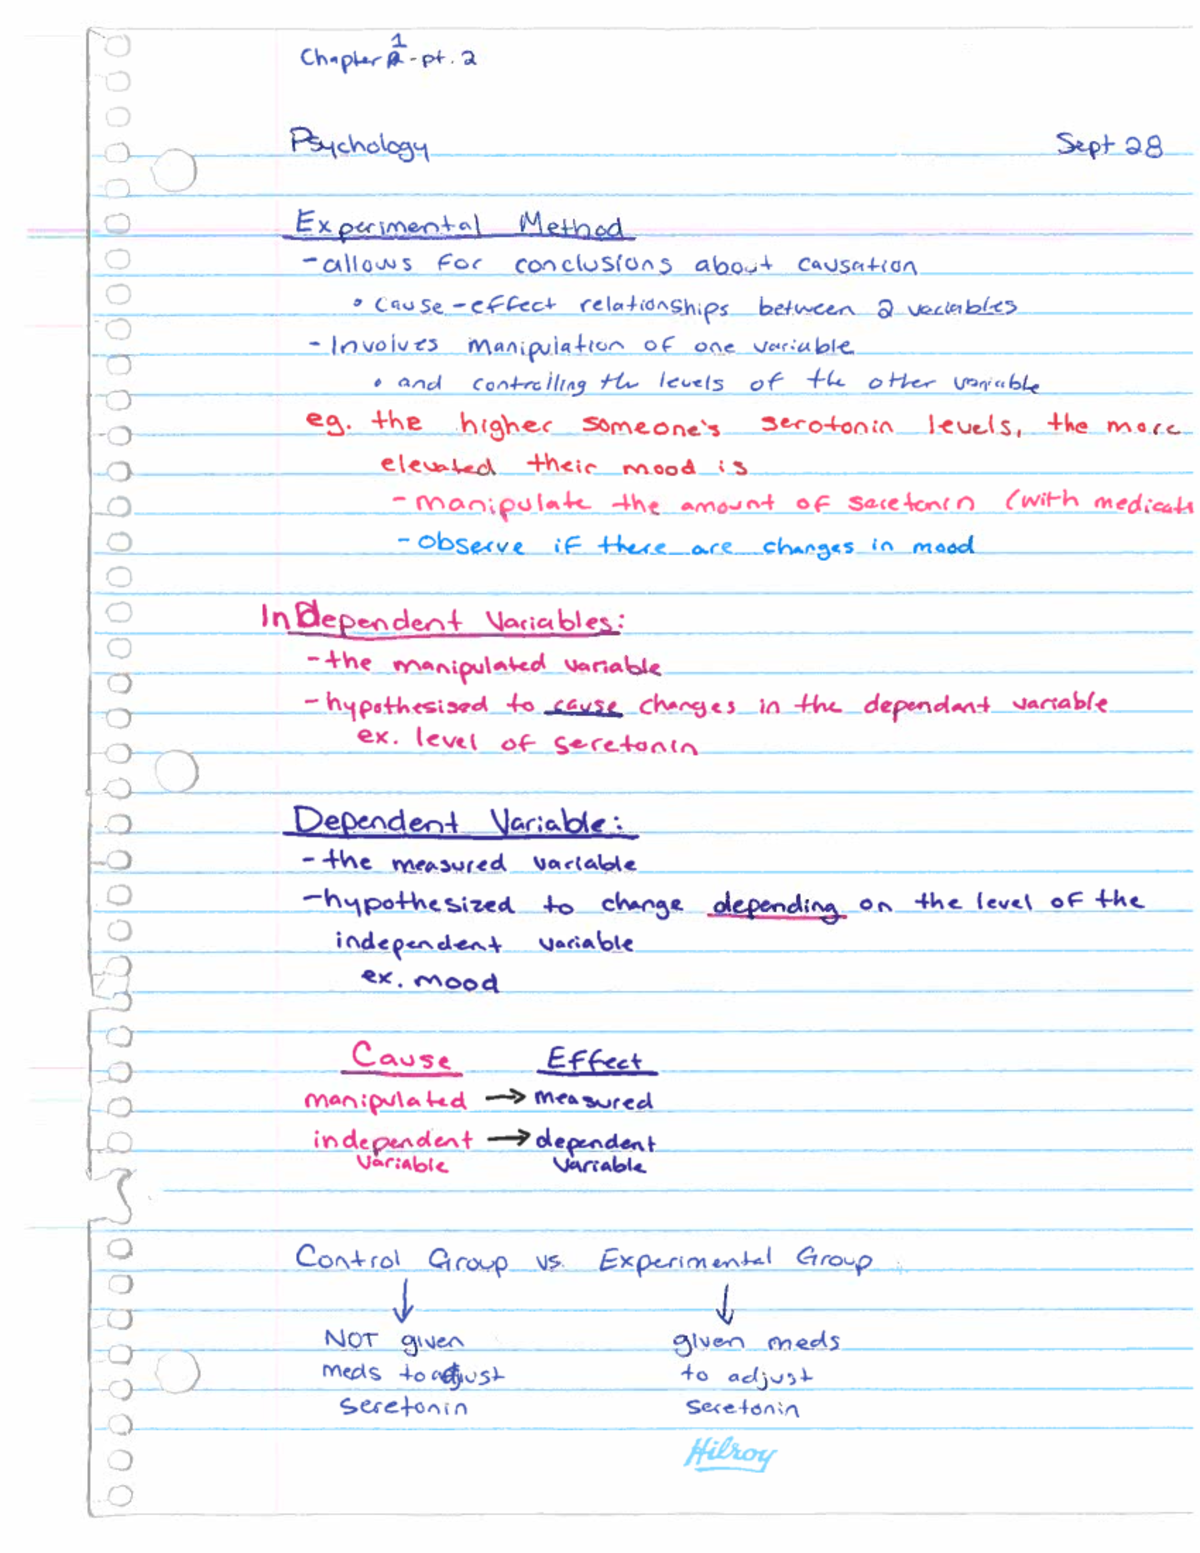 Chapter 1 - pt. 2
Psychology Sept 28
Experimental Method
- allows for conclusions about causation
• cause-effect relationships between 2 variables
- Involves manipulation of one variable
• and controlling the levels of the other variable
eg. the higher someone's serotonin levels, the more
elevated their mood is
- manipulate the amount of seretonin (with medicati
- observe if there are changes in mood
Independent Variables:
- the manipulated variable
- hypothesised to cause changes in the dependant variable
ex. level of seretonin
Dependent Variable:
- the measured variable
- hypothesized to change depending on the level of the
independent variable
ex. mood
Cause Effect
manipulated → measured
independent → dependent
variable variable
Control Group vs. Experimental Group
↓ ↓
NOT given given meds
meds to adjust to adjust
seretonin seretonin
Hilroy